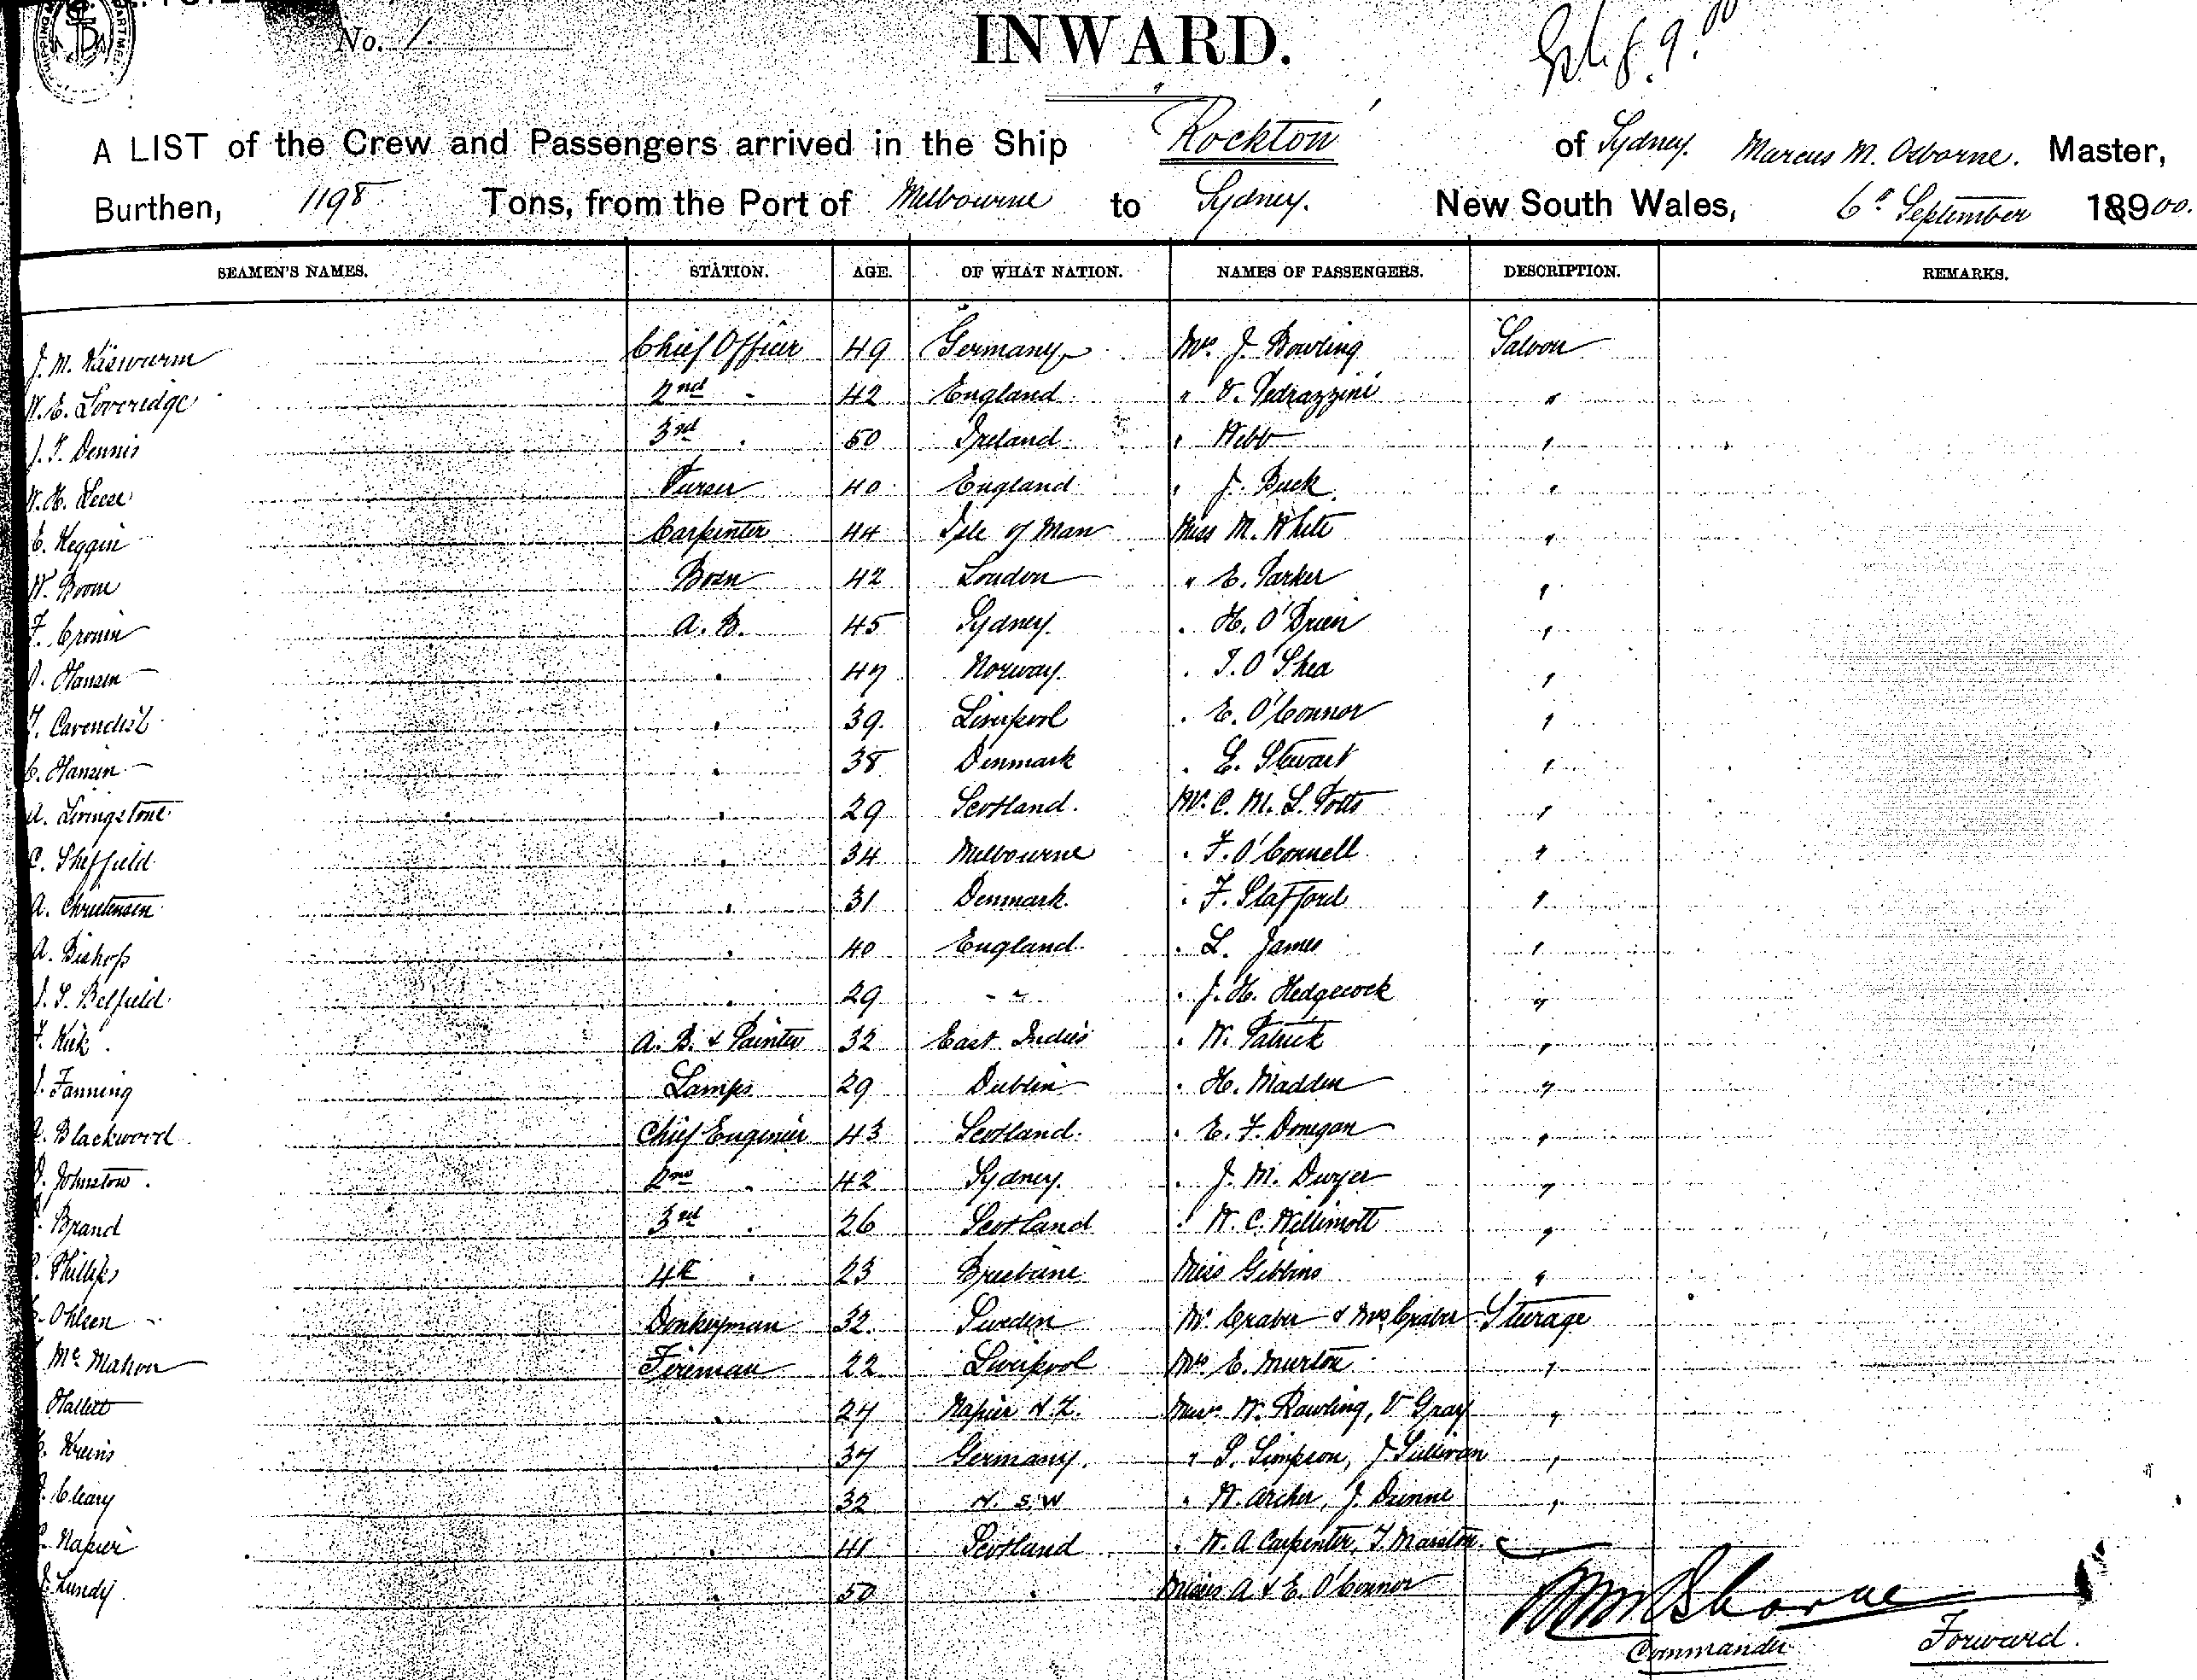 No. 1.
INWARD.
A LIST of the Crew and Passengers arrived in the Ship Rockton of Sydney. Marcus M. Osborne. Master,
Burthen, 1198 Tons, from the Port of Melbourne to Sydney. New South Wales, 6th September 18900.
SEAMEN'S NAMES. STATION. AGE. OF WHAT NATION. NAMES OF PASSENGERS. DESCRIPTION. REMARKS.
J. M. Käswurm Chief Officer 49 Germany Mrs J. Bowling Saloon
W. E. Loveridge 2nd " 42 England " V. Pedrazzini "
J. T. Dennis 3rd " 50 Ireland " Webb "
W. H. Purser 40 England " J. Buck "
E. Keggin Carpenter 44 Isle of Man Miss M. White "
W. Boom Bosn 42 London " E. Parker "
F. Cronin A. B. 45 Sydney. " H. O'Brien "
Hansen " 47 Norway. " T. O'Shea "
Cavendish " 39. Liverpool " E. O'Connor "
C. Hansen " 38 Denmark " E. Stewart "
A. Livingstone " 29 Scotland. Mr C. M. L. Potts "
C. Sheffield " 34 Melbourne " F. O'Connell "
A. Christensen " 31 Denmark. " F. Stafford "
A. Bishop " 40 England. " L. James "
J. S. Belfield " 29 " " " J. H. Hedgecock "
F. Kirk A. B. & Painter 32 East Indies " W. Patrick "
J. Fanning Lamps 29 Dublin " H. Madden "
Blackwood Chief Engineer 43 Scotland. " E. F. Donegan "
Johnston. 2nd " 42 Sydney. " J. M. Dwyer "
Brand 3rd " 26 Scotland " W. C. Willimott "
Phillips 4th " 23 Brisbane Miss Gibbins "
Ohlsen Donkeyman 32. Sweden Mr Graber & Mrs Graber Steerage
McMahon Fireman 22 Liverpool Mrs E. Murton "
Hallett " 27 Napier N.Z. Messrs W. Rawling, V Gray "
Kreins " 37 Germany. " S. Simpson, J Sullivan "
Cleary 32 N. S. W " W. Archer, J. Dunne "
Napier " 41 Scotland " W. A Carpenter, T. Marston "
J. Lundy " 50 " Misses A & E. O'Connor
MMOsborne
Commander Forward.